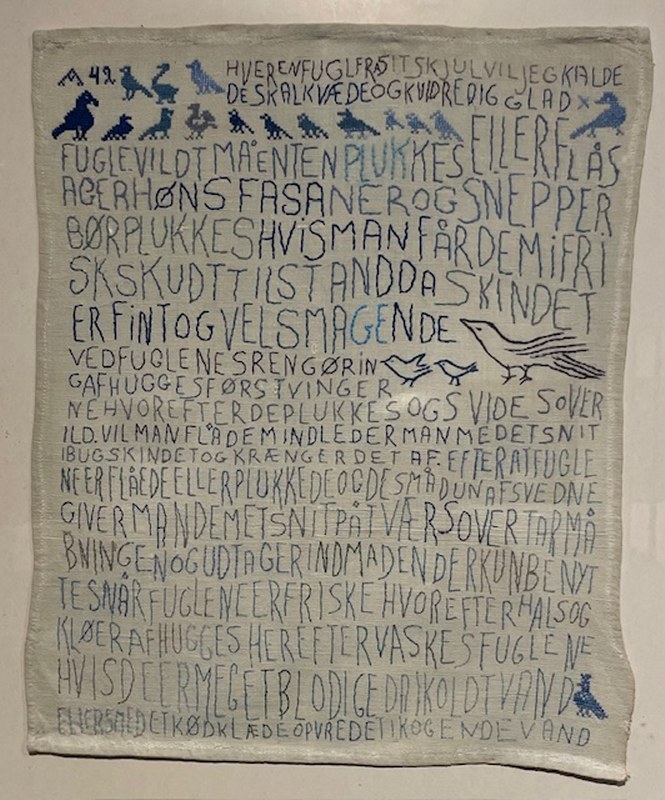 A 42
HVERENFUGLFRASITSKJULVILJEGKALDE
DESKALKVÆDEOGKVIDREDIGGLAD
ELLERFLÅS
FUGLEVILDTMÅENTENPLUKKES
AGERHØNSFASANEROGSNEPPER
BØRPLUKKESHVISMANFÅRDEMIFRI
SKSKUDTTILSTANDDASKINDET
ERFINTOGVELSMAGENDE
VEDFUGLENESRENGØRIN
GAFHUGGESFØRSTVINGER
NEHVOREFTERDEPLUKKESOGSVIDESOVER
ILD.VILMANFLÅDEMINDLEDERMANMEDETSNIT
IBUGSKINDETOGKRÆNGERDETAF.EFTERATFUGLE
NEERFLÅEDEELLERPLUKKEDEOGDESMÅDUNAFSVEDNE
GIVERMANDEMETSNITPÅTVÆRSOVERTARMÅ
BNINGENOGUDTAGERINDMADENDERKUNBENYT
TESNÅRFUGLENEERFRISKEHVOREFTERHALSOG
KLØERAFHUGGESHEREFTERVASKESFUGLENE
HVISDEERMEGETBLODIGEDAIKOLDTVAND
ELLERSMEDETKØDKLÆDEOPVREDETIKOGENDEVAND